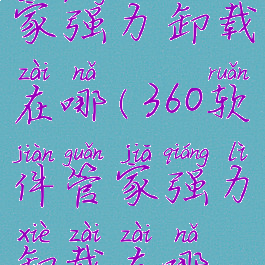 家强力卸载
zài nǎ ruǎn
在哪(360软
jiàn guǎn jiā qiáng lì
件管家强力
xiè zài zài nǎ
卸载在哪